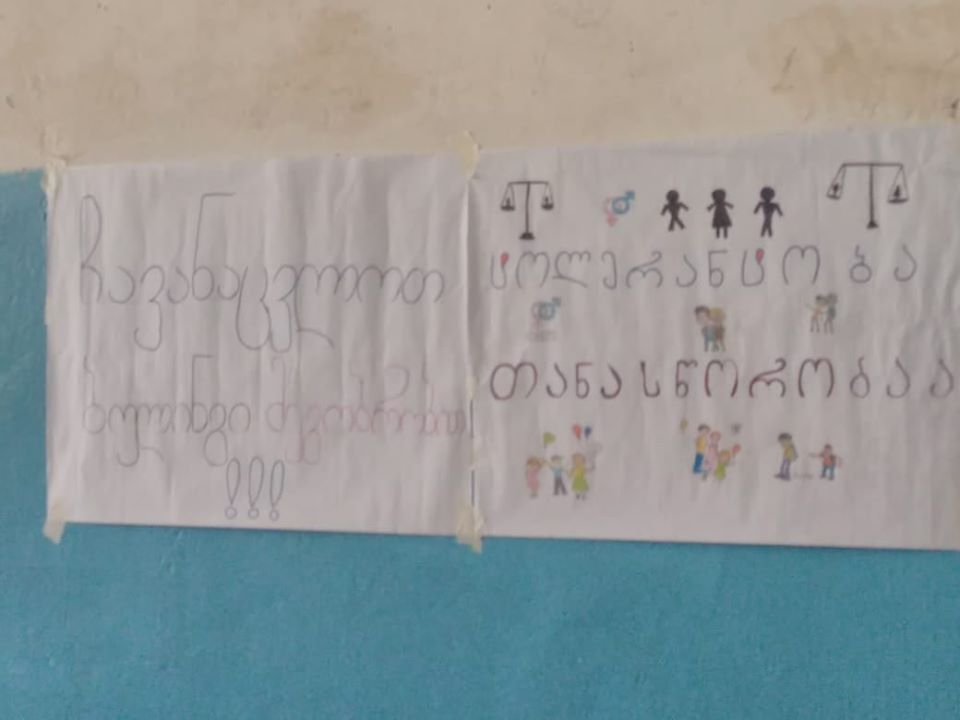 ჩავანაცვლოთ
ბულინგი მეგობრობით
!!!
ტოლერანტობა
თანასწორობაა